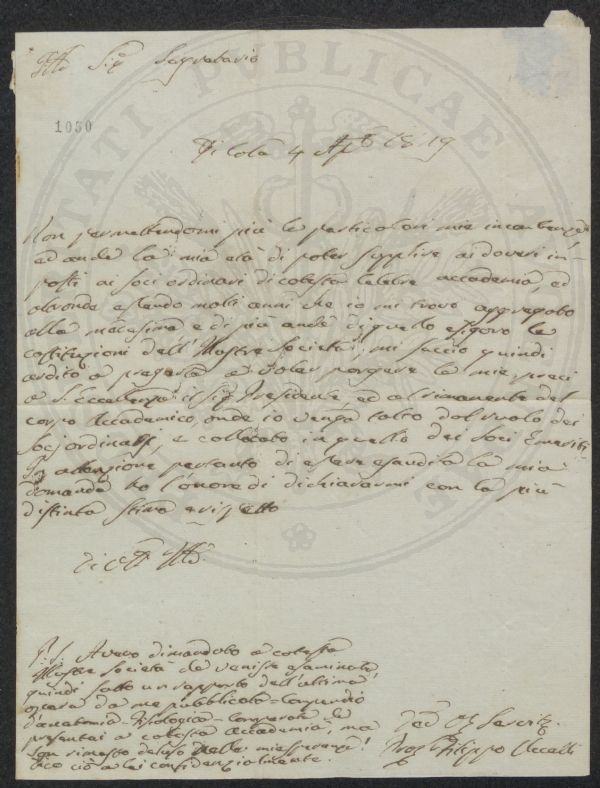 Sig.e Segretario
1030
Di Casa 4 Ap.le 1819
Non permettendomi più le particolari mie incombenze
ed anche la mia età di poter supplire ai doveri im-
posti ai soci ordinari di cotesta celebre accademia, ed
altronde essendo molti anni che io mi trovo aggregato
alla medesima e di più anche di quello esigono le
costituzioni dell'Illustre Società; mi faccio quindi
ardito a pregarla a voler porgere le mie preci
a S. Eccellenza il Sig. Presidente ed al rimanente del
corpo Accademico, onde io venga tolto dal ruolo dei
Socj ordinarj, e collocato in quello dei Soci Emeriti
In attenzione pertanto di essere esaudita la mia
domanda ho l'onore di dichiararmi con la più
distinta stima e rispetto
P. S. Avevo dimandato a cotesta
Illustre Società che venisse esaminata,
quindi fatto un rapporto dell'ultima
opera da me pubblicata - Compendio
d'anatomia Fisiologico-Comparata la
presentai a cotesta accademia, ma
son rimasto deluso nelle mie speranze!
Dico ciò a lei confidenzialmente.
Filippo Uccelli